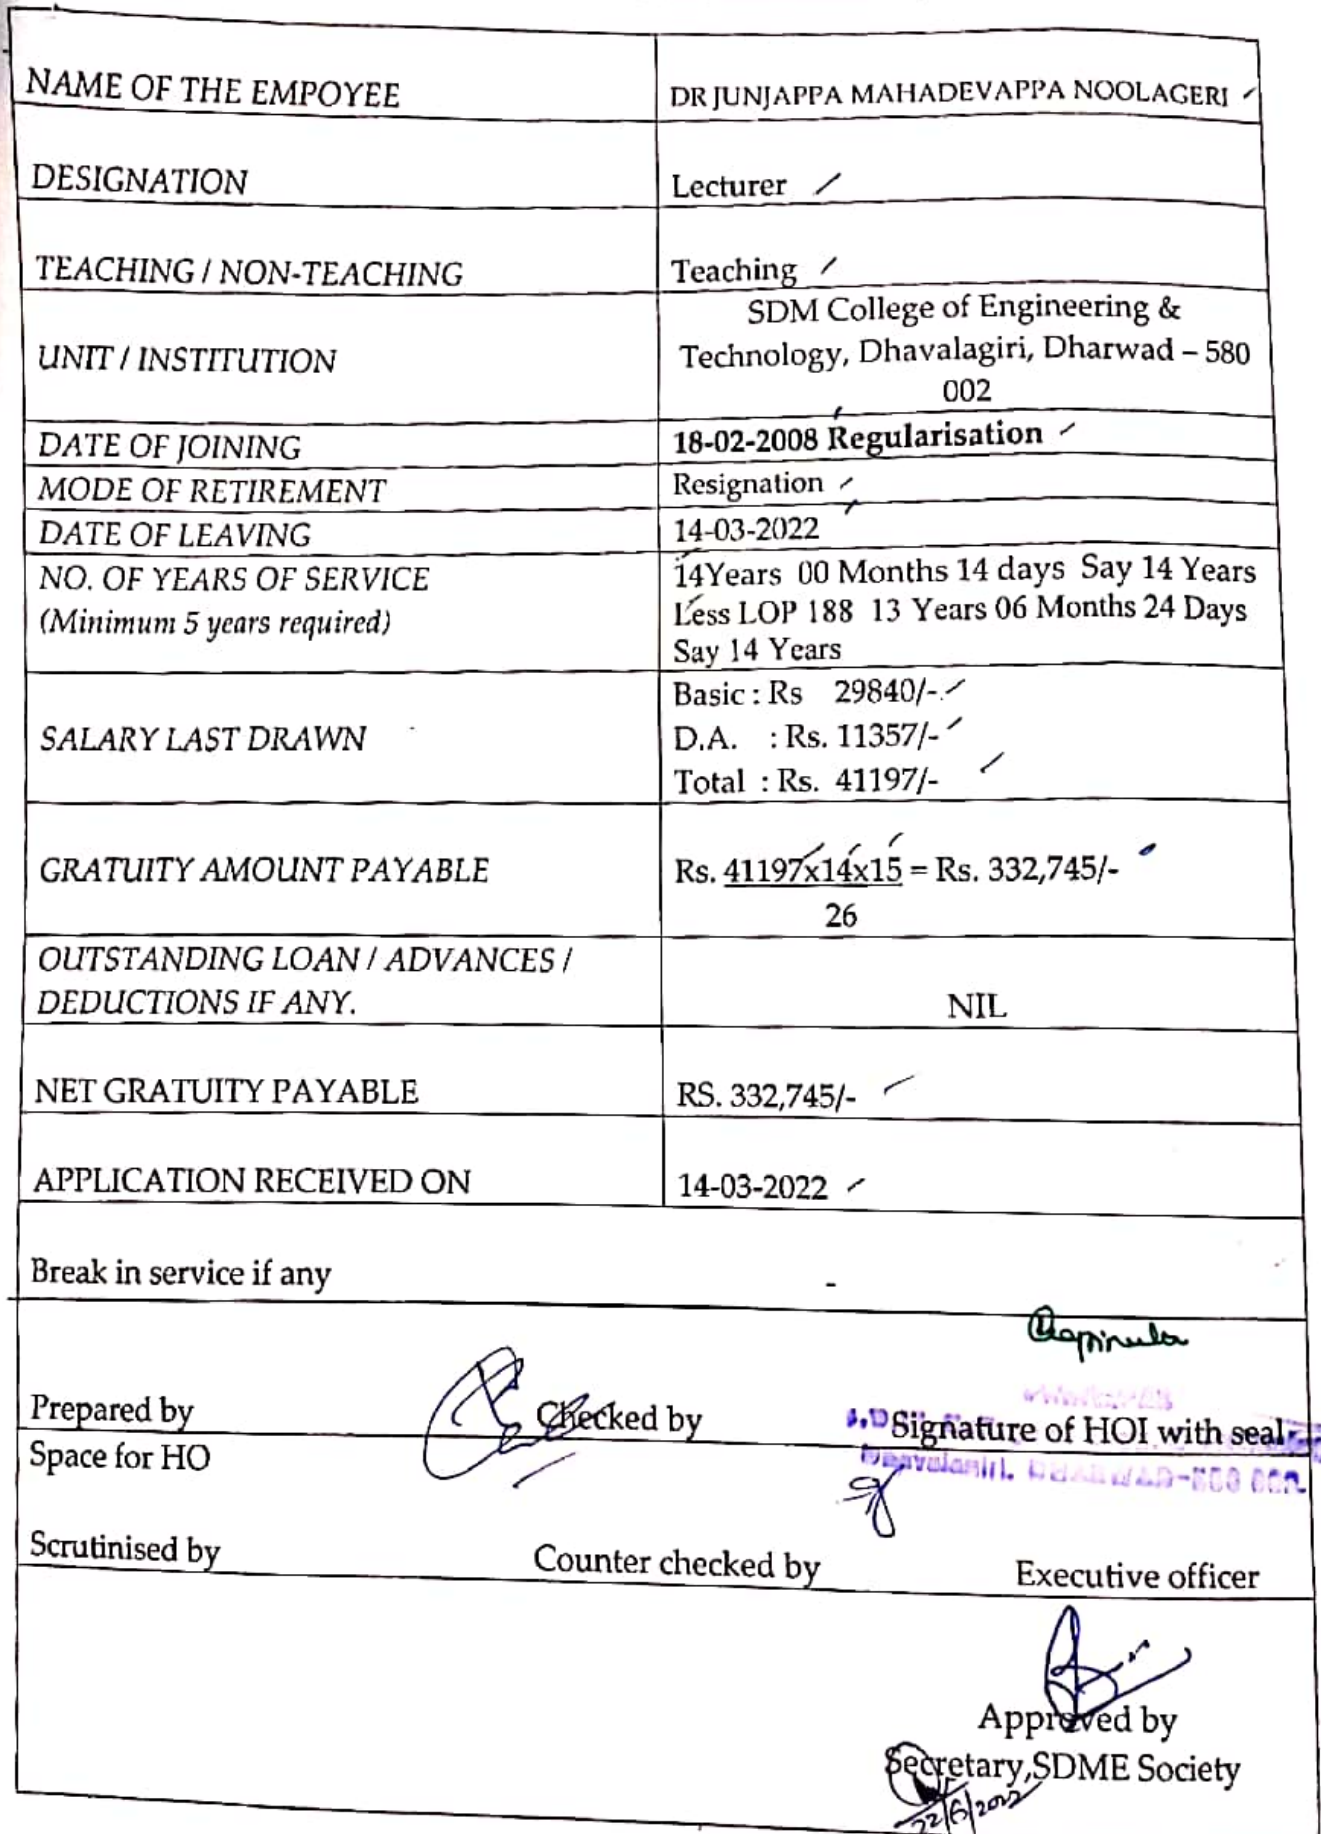 NAME OF THE EMPOYEE
DR JUNJAPPA MAHADEVAPPA NOOLAGERI
DESIGNATION
Lecturer
TEACHING / NON-TEACHING
Teaching
UNIT / INSTITUTION
SDM College of Engineering &
Technology, Dhavalagiri, Dharwad – 580
002
DATE OF JOINING
18-02-2008 Regularisation
MODE OF RETIREMENT
Resignation
DATE OF LEAVING
14-03-2022
NO. OF YEARS OF SERVICE
(Minimum 5 years required)
14Years 00 Months 14 days Say 14 Years
Less LOP 188 13 Years 06 Months 24 Days
Say 14 Years
SALARY LAST DRAWN
Basic : Rs 29840/-
D.A. : Rs. 11357/-
Total : Rs. 41197/-
GRATUITY AMOUNT PAYABLE
Rs. 41197x14x15 = Rs. 332,745/-
26
OUTSTANDING LOAN / ADVANCES /
DEDUCTIONS IF ANY.
NIL
NET GRATUITY PAYABLE
RS. 332,745/-
APPLICATION RECEIVED ON
14-03-2022
Break in service if any -
Prepared by Checked by Signature of HOI with seal
DHARWAD-580 002.
Space for HO
Scrutinised by Counter checked by Executive officer
Approved by
Secretary,SDME Society
22/6/2022